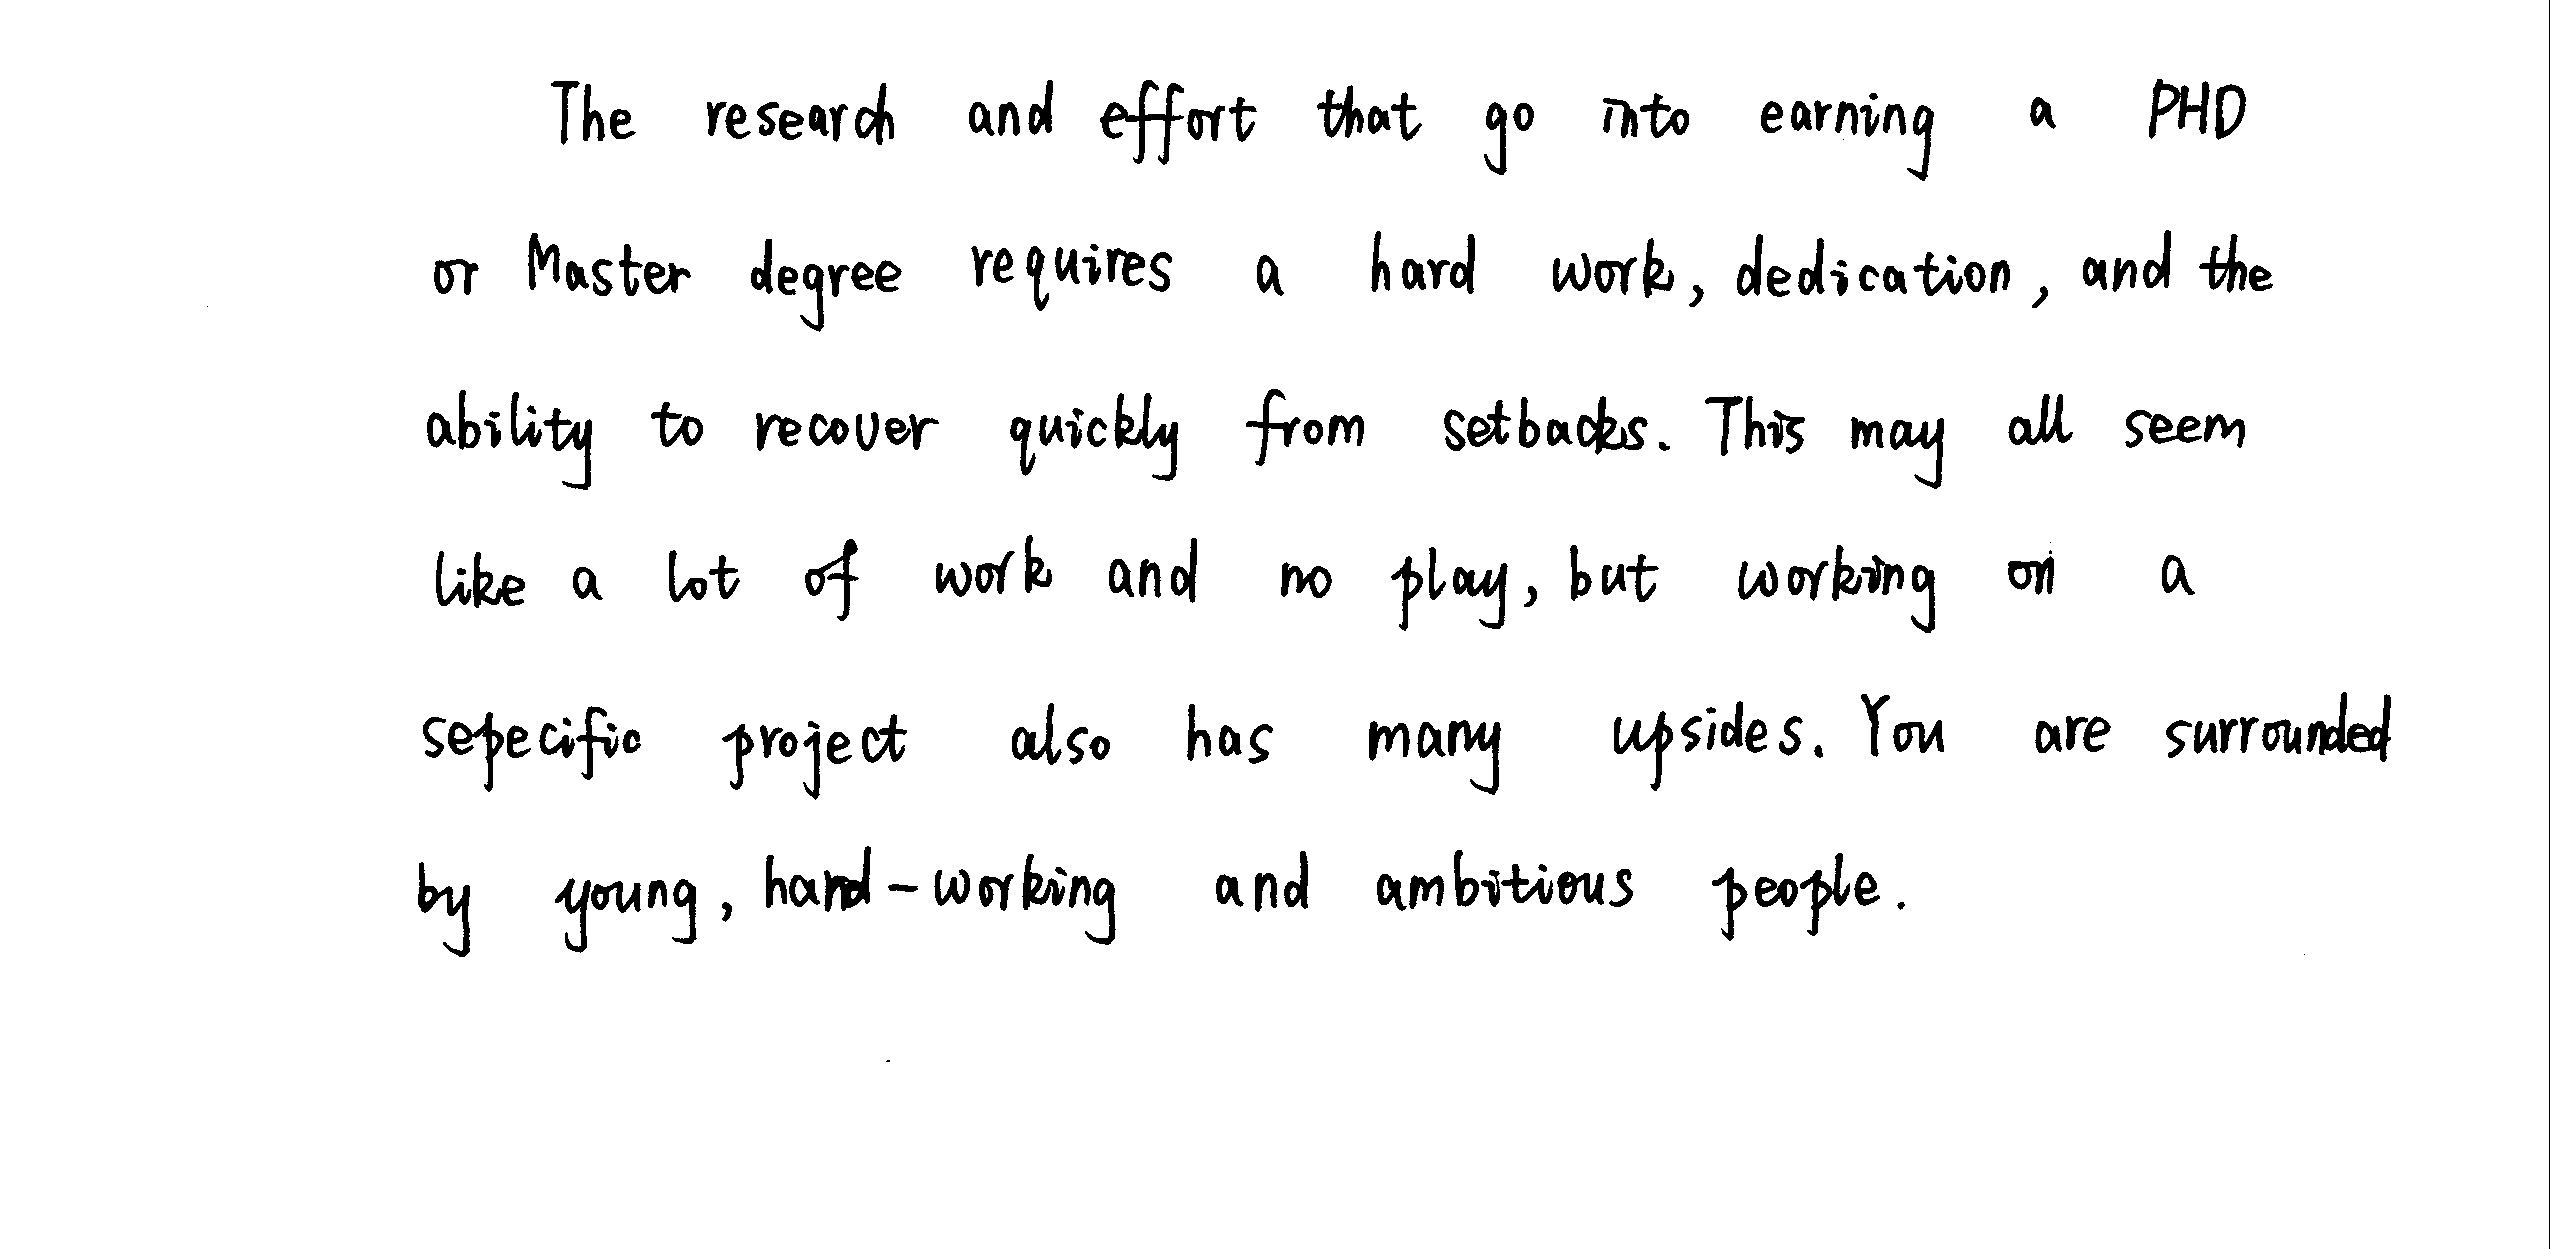 The research and effort that go into earning a PHD
or Master degree requires a hard work, dedication, and the
ability to recover quickly from setbacks. This may all seem
like a lot of work and no play, but working on a
sepecific project also has many upsides. You are surrounded
by young, hard-working and ambitious people.